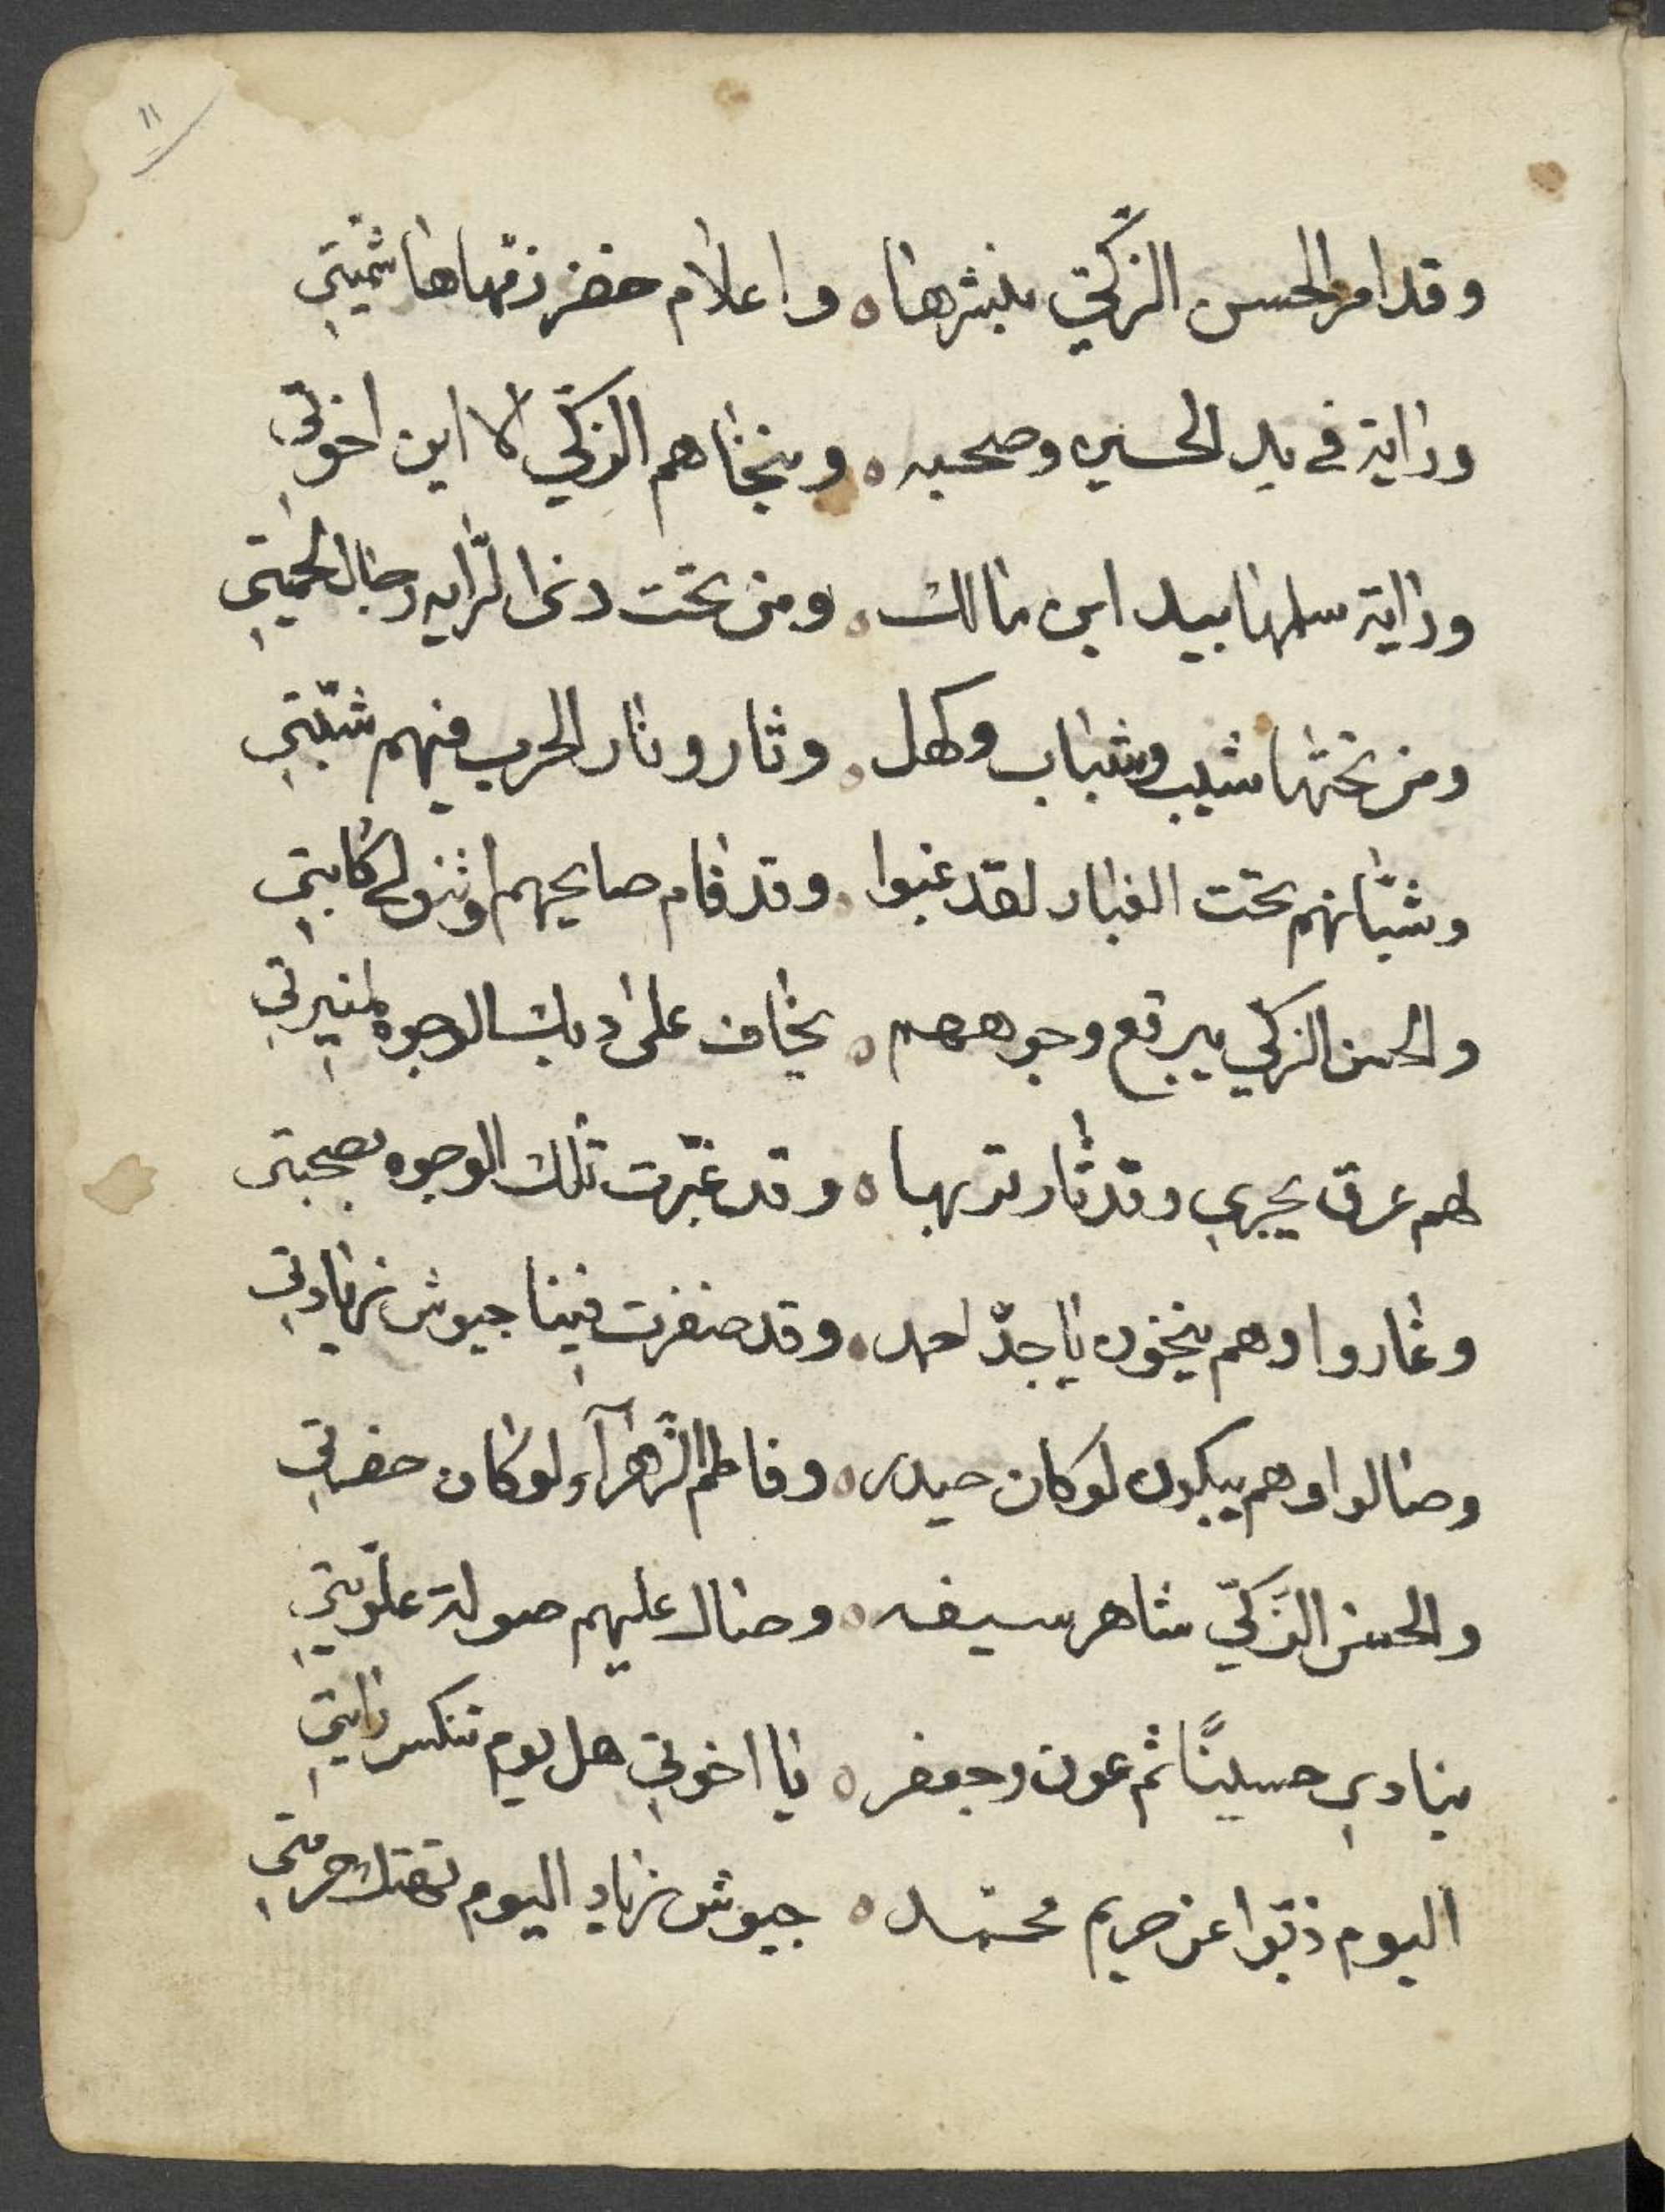 ١١
وقد امر الحسن الزكّي بنشرها ه واعلام خضر زفها هاشميتي
وراية في يد الحسين وصحبه ه وينخاهم الزكّي الا اين اخوتي
وراية سلمها بيد ابن مالك ه ومن تحت دى الرّايه رجال الحميتي
ومن تحتها شيب وشباب وكهل ه وثار ونار الحرب فيهم شبّتي
وشبّانهم تحت الغبار لقد غبوا ه وقد قام صايحهم
والحسن الزكّي يبرقع وجوههم ه يخاف على ديك الوجوه لمنيرتي
لهم عرق يجري وقد ثار تربها ه وقد غبّرت تلك الوجوه بصحبتي
وغاروا وهم ينخون يا جدّ احمد ه وقد ضفرت فينا جيوش زيادتي
وصالوا وهم يبكون لو كان حيدر ه وفاطم الزّهرآء لو كان حضرتي
والحسن الزّكيّ شاهر سيفه ه وصال عليهم صولة علّويتي
ينادي حسينًا ثم عون وجعفر ه يا اخوتي هل يوم تنكس رايتي
اليوم ذبّوا عن حريم محمّد ه جيوش زياد اليوم تهتك حرمتي